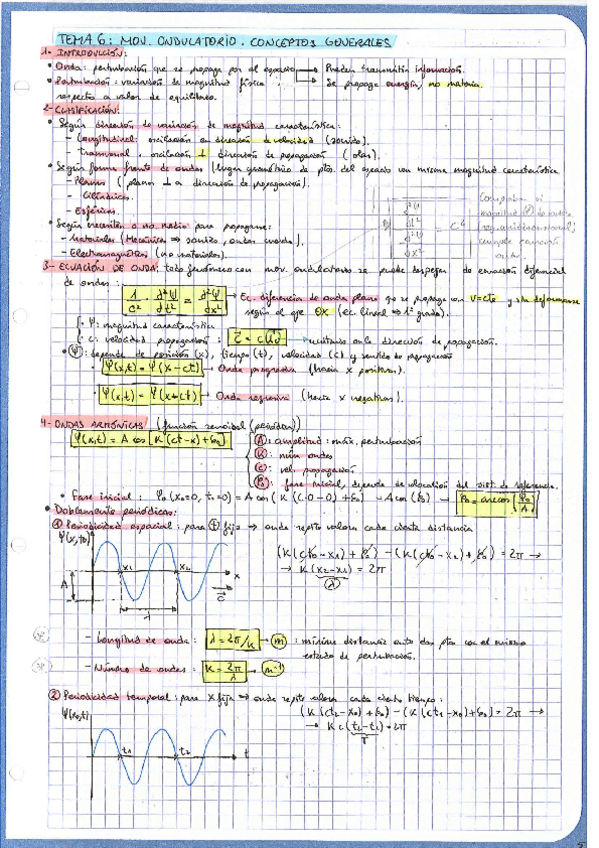 TEMA 6: MOV. ONDULATORIO. CONCEPTOS GENERALES
1- INTRODUCCIÓN:
• Onda: perturbación que se propaga por el espacio → Pueden transmitir información.
• Perturbación: variación de magnitud física → Se propaga energía, no materia.
respecto a valor de equilibrio.
2- CLASIFICACIÓN:
• Según dirección de variación de magnitud característica:
- Longitudinal: oscilación en dirección de velocidad (sonido).
- Transversal: oscilación ⊥ dirección de propagación (olas).
• Según forma frente de ondas (lugar geométrico de ptos. del espacio con misma magnitud característica
- Planas (planos ⊥ a dirección de propagación).
- Cilíndricas.
- Esféricas.
• Según necesiten o no medio para propagarse:
- Materiales (Mecánicas ⇒ sonido, ondas cuerda).
- Electromagnéticas (no materiales).
3- ECUACIÓN DE ONDA: todo fenómeno con mov. ondulatorio se puede despejar de ecuación diferencial
de ondas:
1/c² · d²Ψ/dt² = d²Ψ/dx² → Ec. diferencial de onda plana que se propaga con v=cte y sin deformarse
según el eje OX (ec. lineal ⇒ 1º grado).
Ψ: magnitud característica
c: velocidad propagación: unitario en la dirección de propagación.
• Ψ: depende de posición (x), tiempo (t), velocidad (c) y sentido de propagación
• Ψ(x,t) = Ψ(x-ct) → Onda progresiva (hacia x positivas).
• Ψ(x,t) = Ψ(x+ct) → Onda regresiva (hacia x negativas).
4- ONDAS ARMÓNICAS (función senoidal (periódicas))
Ψ(x,t) = A cos [K(ct-x)+φ₀]
A: amplitud: máx. perturbación
K: núm ondas
c: vel. propagación
φ₀: fase inicial, depende de ubicación del sist. de referencia.
• Fase inicial: Ψ₀ (x₀=0, t₀=0) = A cos (K(c·0-0)+φ₀) = A cos(φ₀) → φ₀ = arccos (Ψ₀/A)
• Doblemente periódicas:
① Periodicidad espacial: para t fijo → onda repite valores cada cierta distancia
Ψ(x,t₀)
(K(ct₀-x₁)+φ₀) - (K(ct₀-x₂)+φ₀) = 2π →
→ K(x₂-x₁) = 2π
λ
A
x₁
x₂
x
c
λ
- Longitud de onda: λ = 2π/K → m : mínima distancia entre dos ptos con el mismo
estado de perturbación.
- Número de ondas: K = 2π/λ → m⁻¹
② Periodicidad temporal: para x fijo ⇒ onda repite valores cada cierto tiempo:
Ψ(x₀,t)
(K(ct₂-x₀)+φ₀) - (K(ct₁-x₀)+φ₀) = 2π →
→ Kc(t₂-t₁) = 2π
T
t₁
t₂
t